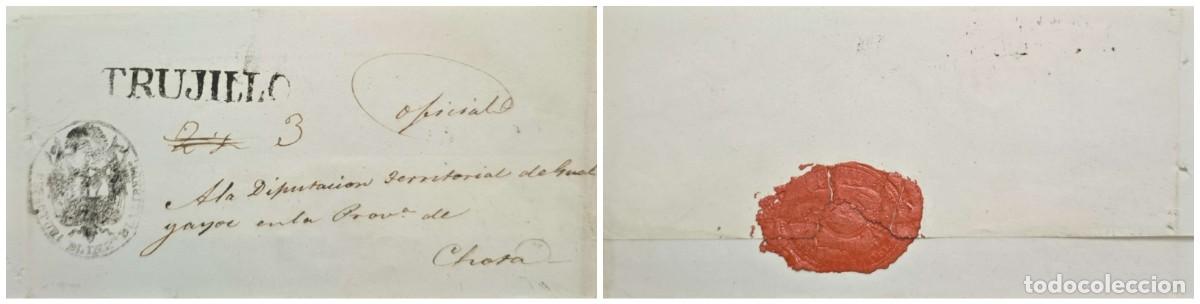 TRUJILLO
oficial
3
A la Diputacion territorial de Gual
gayoc en la Prov.a de
Chota
todocoleccion